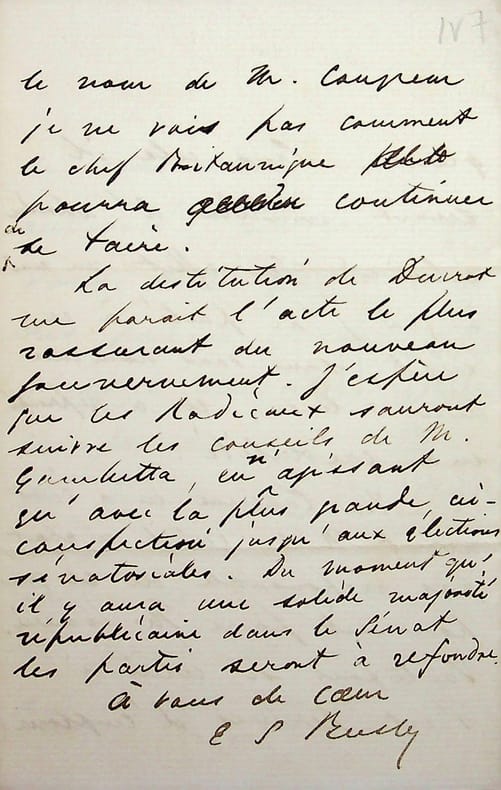 147
le nom de M. Coupeur
je ne vois pas comment
le chef Britannique
pourra continuer
de
se taire.
La destitution de Ducrot
me parait l'acte le plus
rassurant du nouveau
gouvernement. J'espère
que les Radicaux sauront
suivre les conseils de M.
Gambetta, en n'agissant
qu'avec la plus grande cir-
conspection jusqu'aux élections
sénatoriales. Du moment qu'
il y aura une solide majorité
républicaine dans le Sénat
les partis seront à refondre.
à vous de cœur
E S Beesly